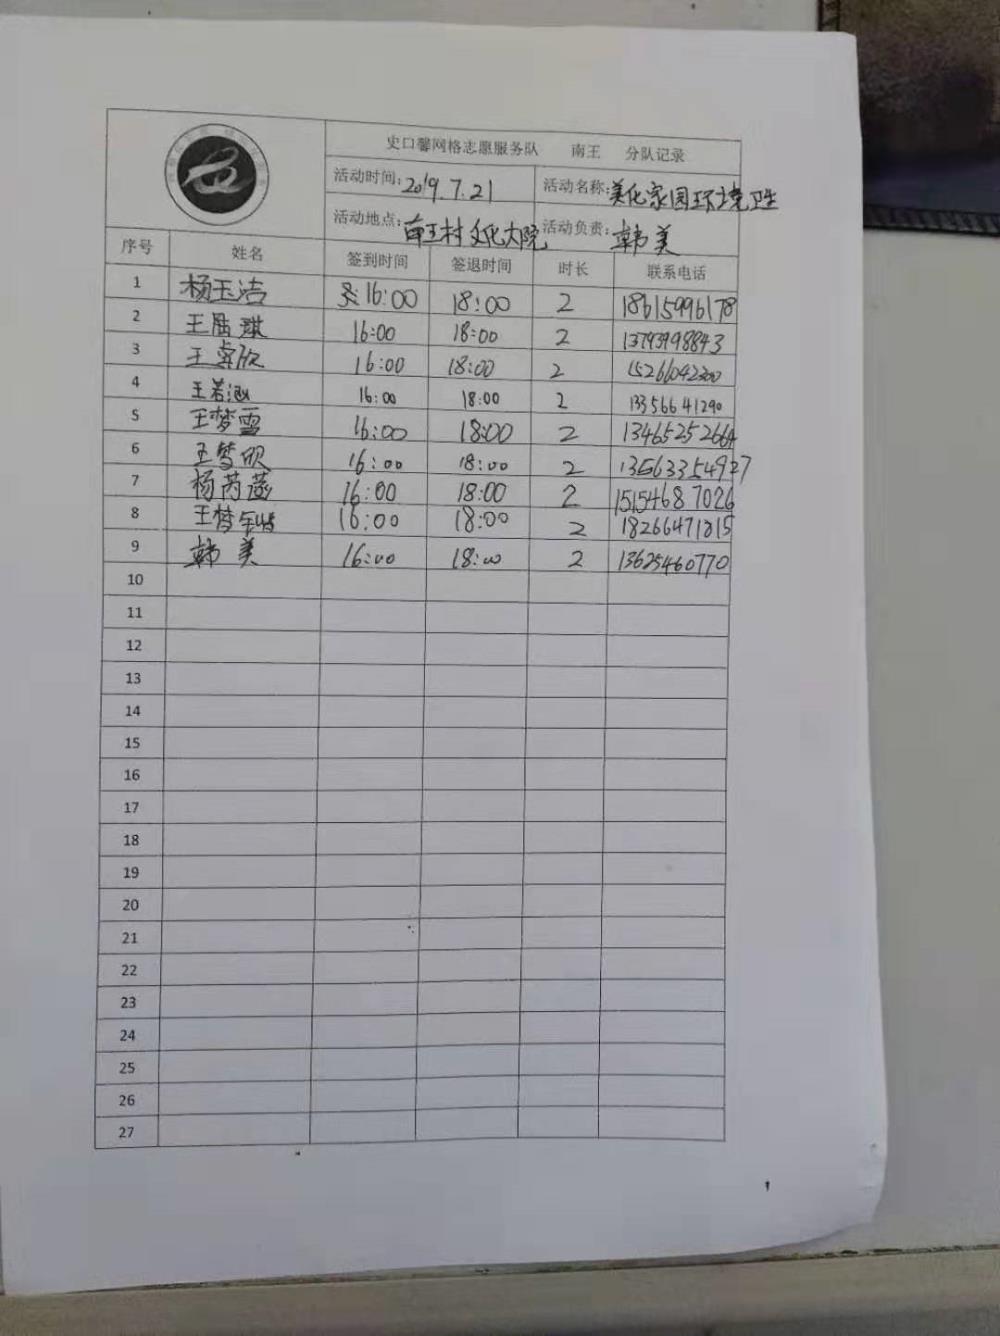 史口馨网格志愿服务队 南王 分队记录
活动时间:2019.7.21 活动名称:美化家园环境卫生
活动地点:南王村文化大院 活动负责:韩美
序号 姓名 签到时间 签退时间 时长 联系电话
1 杨玉洁 16:00 18:00 2 18615996178
2 王陆琪 16:00 18:00 2 13793998843
3 王睿欣 16:00 18:00 2 15266042300
4 王若涵 16:00 18:00 2 13356641290
5 王梦雪 16:00 18:00 2 13465252664
6 王梦欣 16:00 18:00 2 13563354927
7 杨芮菡 16:00 18:00 2 15154687026
8 王梦 16:00 18:00 2 18266471315
9 韩美 16:00 18:00 2 13625460770
10
11
12
13
14
15
16
17
18
19
20
21
22
23
24
25
26
27